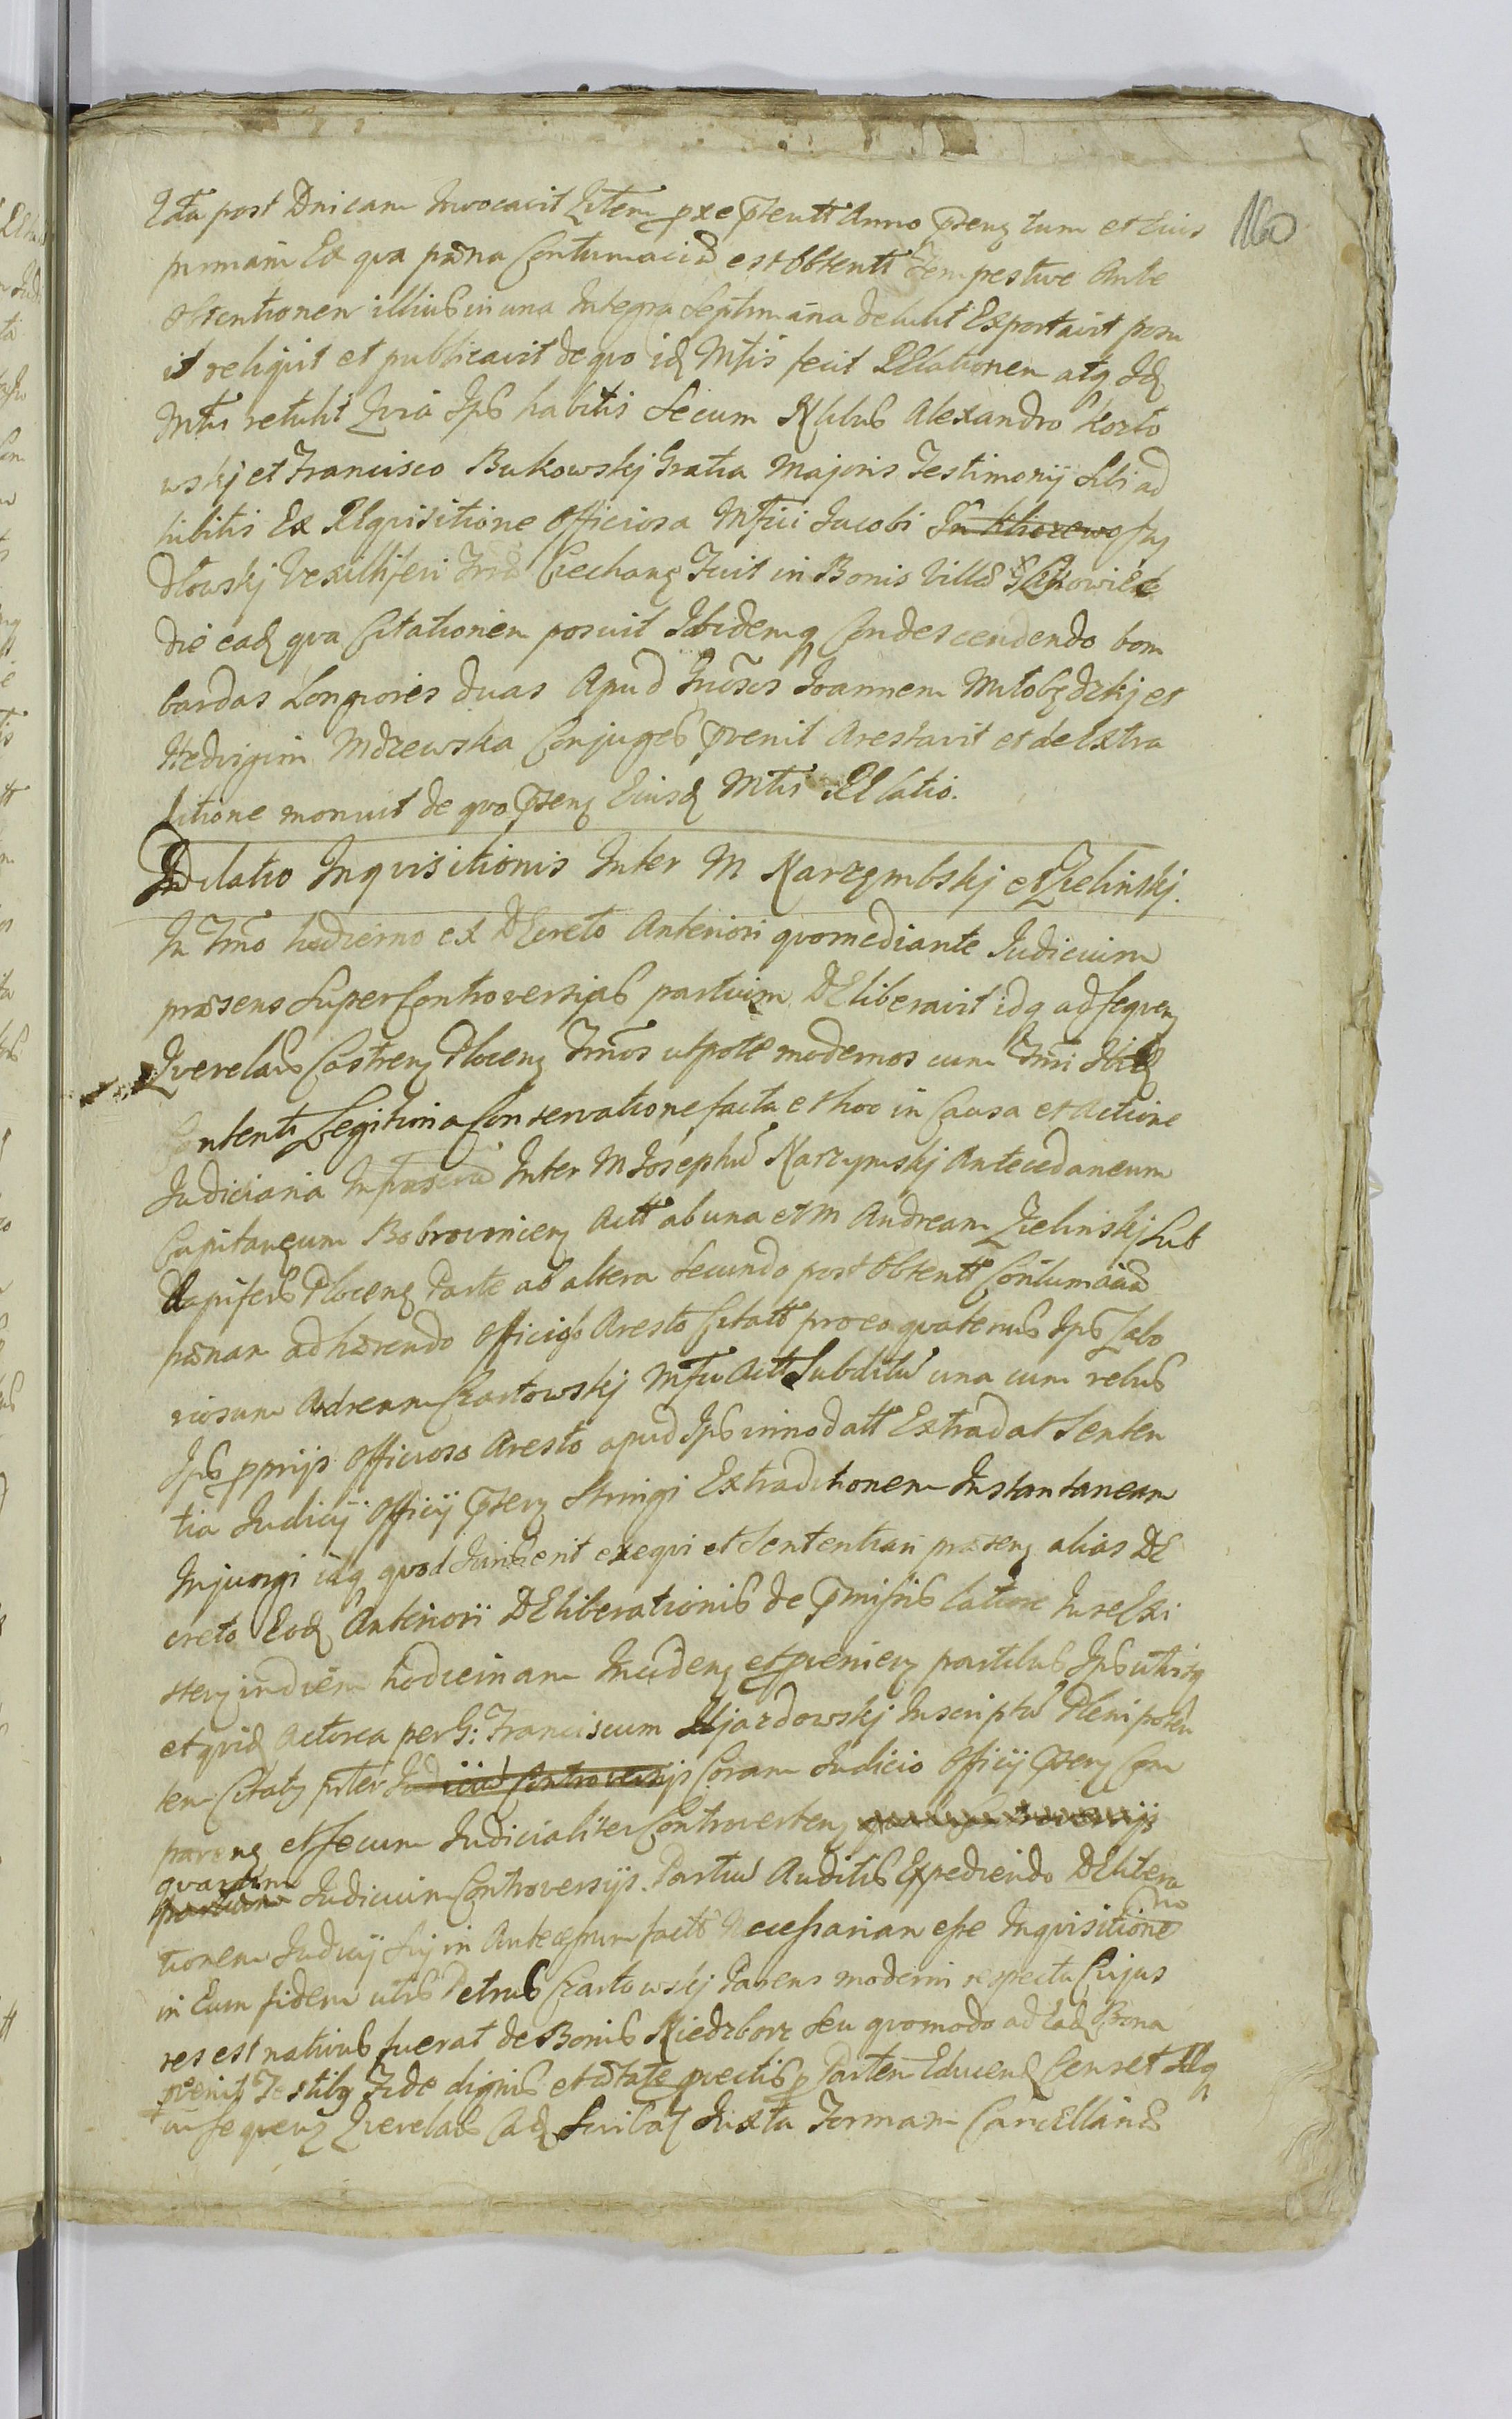 160
post Dnicam Invocavit Anno tum et Eius
primam Ex qua pæna Contumaciæ est obtentt tempestive Ante
obtentionem illius in una Integra Septimana detulit Exportavit posu
it reliquit et publicavit de quo Mtis fecit RElationem atq
Mtis retulit habitis Secum Nlibus Alexandro Kozło
wskj et Francisco Bukowskj Gratia Majoris Testimonij Sibi ad
hibitis Ex REquisitione Officiosa Mfici Jacobi
dłowskj Vexilliferi Ciechang fuit in Bonis Villæ
die ead qva Citationem posuit Ibidemq Condescendendo bom
bardas Longiores duas Apud Joannem Miłobędzkj et
Hedvigim Mdzewska Conjuges pvenit Arestavit et de Extra
ditione monuit de quo Eiusd Mtis RElatio.
Dilatio Inqvisitionis Inter M Narzymbskj et Zielinskj.
In Tmo hodierno ex DEcreto Anteriori quomediante Judicium
præsens Super Controversijs partium DEliberavit idq ad seqven
Qverelas Castren Plocen Tmos utpote modernos cum Tmi
Contenti Legitima Conservatione facta et hoc in Causa et Actione
Judiciaria Inter M Josephu Narzymskj Antecedaneum
Capitaneum Bobrovnicen Actt ab una et M Andream Zielinskj Sub
Dapiferu Plocen Parte ab altera Secundo post Obtentt Contumaciæ
pænam adhærendo Officioso Aresto Citatt pro eo quatenus Ips Labo
riosum Andream Czartowskj Mfici Actt Subditu una cum rebus
Ips pprijs Officioso Aresto apud Ips innodatt Extradat Senten
tia Judicij Officij Stringi Extraditionem Instantaneam
Injungi idq quod Juris erit exequi et Sententiam præsen alias DE
creto Eod Anteriori DEliberationis de pmissis latione
in diem hodiernam Inciden et pvenien partibus Ips utrisq
et quid Actorea per G: Franciscum Ujazdowskj Inscriptu Plenipoten
tem Citatq Coram Judicio Officij Com
paren et Secum Judicialiter Controverten
quarum Judicium Controversijs Partiu Auditis Expediendo DElibera
tionem Judicij in Antecessum factt Necessariam esse Inquisitionem
in Eum fidem Petrus Czartowskj Parens moderni respectu Cujus
res est nativus fuerat de Bonis Niedzborz seu quomodo ad Ead Bona
pvenit Testibq Fide dignis et ætate pvectis p Partem Educend Censet
in seqven Qverelas Juxta Formam Cancellariæ